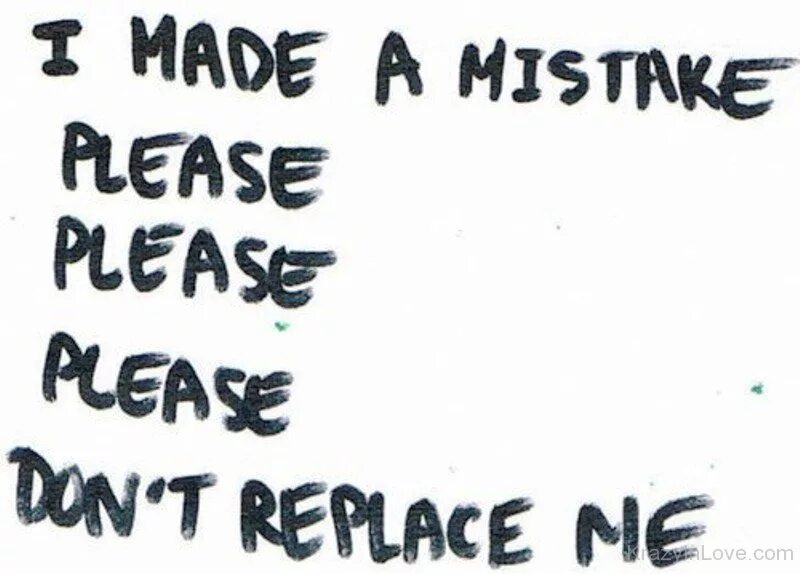 I MADE A MISTAKE
PLEASE
PLEASE
PLEASE
DON'T REPLACE ME
KrazyInLove.com